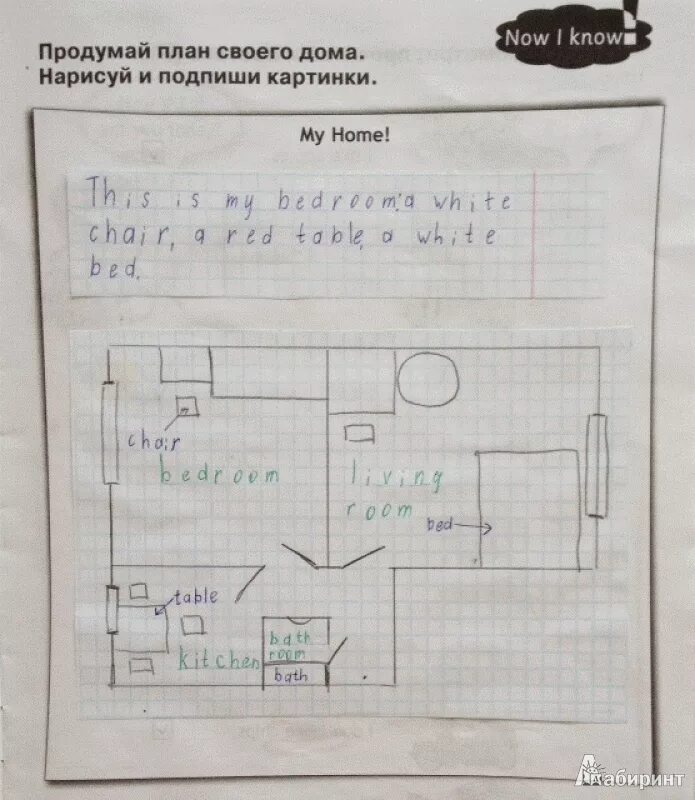 Now I know!
Продумай план своего дома.
Нарисуй и подпиши картинки.
My Home!
This is my bedroom: a white
chair, a red table, a white
bed.
chair
bedroom
living
room
bed
table
kitchen
bath
room
bath
Лабиринт